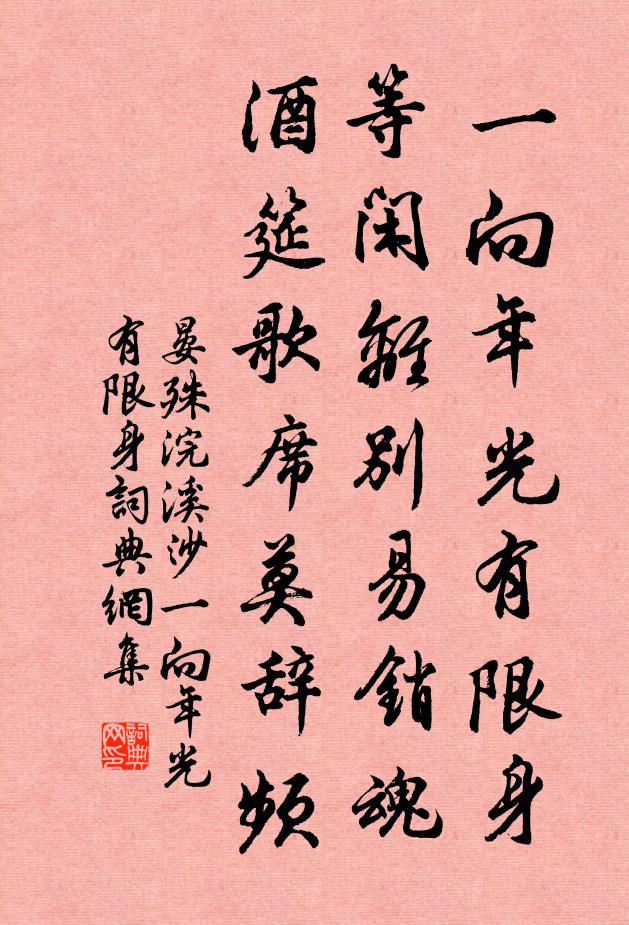 一向年光有限身
等闲離別易銷魂
酒筵歌席莫辞頻
晏殊浣溪沙一向年光
有限身詞典網集
詞典网印